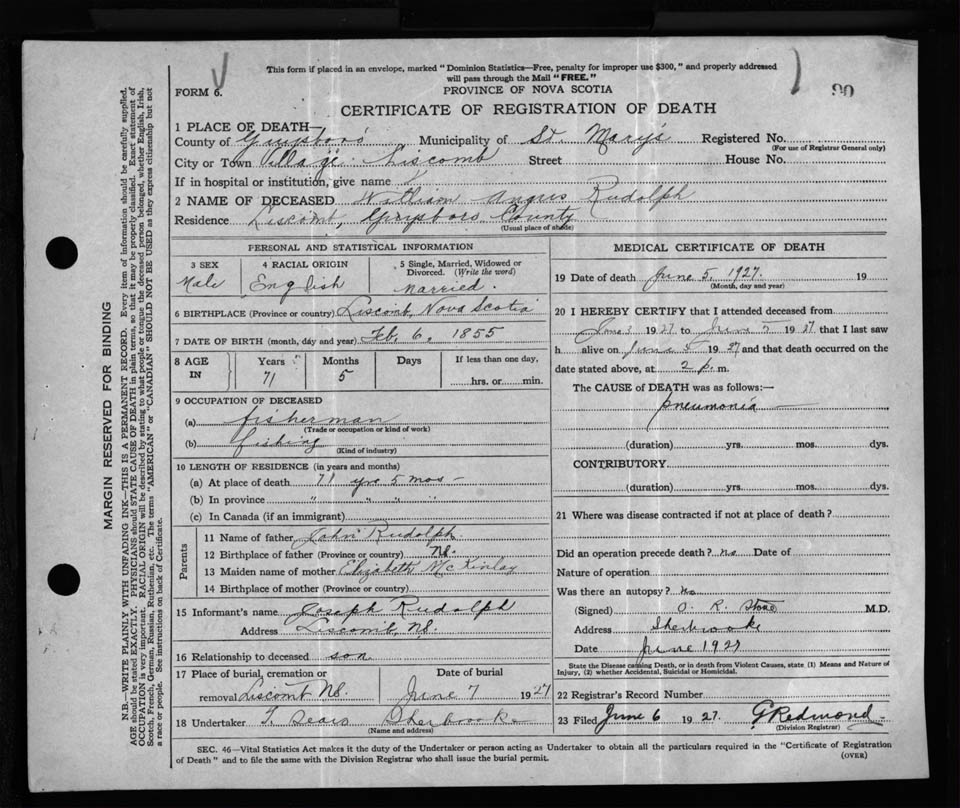 This form if placed in an envelope, marked "Dominion Statistics—Free, penalty for improper use $300," and properly addressed
will pass through the Mail "FREE."
90
FORM 6.
PROVINCE OF NOVA SCOTIA
CERTIFICATE OF REGISTRATION OF DEATH
1 PLACE OF DEATH
County of Guysboro Municipality of St. Mary's Registered No.
(For use of Registrar General only)
City or Town Village Liscomb Street House No.
If in hospital or institution, give name
2 NAME OF DECEASED William Angus Rudolph
Residence Liscomb, Guysboro County
(Usual place of abode)
PERSONAL AND STATISTICAL INFORMATION
3 SEX 4 RACIAL ORIGIN 5 Single, Married, Widowed or
Divorced. (Write the word)
Male English Married.
6 BIRTHPLACE (Province or country) Liscomb, Nova Scotia
7 DATE OF BIRTH (month, day and year) Feb. 6, 1855
8 AGE Years Months Days If less than one day,
IN 71 5 hrs. or min.
9 OCCUPATION OF DECEASED
(a) fisherman
(Trade or occupation or kind of work)
(b) fishing
(Kind of industry)
10 LENGTH OF RESIDENCE (in years and months)
(a) At place of death 71 yrs 5 mos —
(b) In province " " " "
(c) In Canada (if an immigrant)
Parents
11 Name of father John Rudolph
12 Birthplace of father (Province or country) NS.
13 Maiden name of mother Elizabeth McKinlay
14 Birthplace of mother (Province or country)
15 Informant's name Joseph Rudolph
Address Liscomb, NS.
16 Relationship to deceased son
17 Place of burial, cremation or Date of burial
removal Liscomb NS. June 7 1927
18 Undertaker T. Sears Sherbrooke
(Name and address)
MEDICAL CERTIFICATE OF DEATH
19 Date of death June 5, 1927. 19
(Month, day and year)
20 I HEREBY CERTIFY that I attended deceased from
June 3 1927 to June 5 1927 that I last saw
h alive on June 5 1927 and that death occurred on the
date stated above, at 2 p. m.
The CAUSE of DEATH was as follows:—
pneumonia
(duration) yrs. mos. dys.
CONTRIBUTORY
(duration) yrs. mos. dys.
21 Where was disease contracted if not at place of death?
Did an operation precede death? no Date of
Nature of operation
Was there an autopsy? no
(Signed) O. R. Stone M.D.
Address Sherbrooke
Date June 1927
State the Disease causing Death, or in death from Violent Causes, state (1) Means and Nature of
Injury, (2) whether Accidental, Suicidal or Homicidal.
22 Registrar's Record Number
23 Filed June 6 1927. G Redmond
(Division Registrar)
SEC. 46—Vital Statistics Act makes it the duty of the Undertaker or person acting as Undertaker to obtain all the particulars required in the "Certificate of Registration
of Death" and to file the same with the Division Registrar who shall issue the burial permit.
(OVER)
MARGIN RESERVED FOR BINDING
N.B.—WRITE PLAINLY WITH UNFADING INK—THIS IS A PERMANENT RECORD. Every item of information should be carefully supplied.
AGE should be stated EXACTLY. PHYSICIANS should STATE CAUSE OF DEATH in plain terms, so that it may be properly classified. Exact statement of
OCCUPATION is very important. RACIAL ORIGIN will be described by stating to what people or tongue the deceased person belonged, whether English, Irish,
Scotch, French, German, Russian, Ruthenian, etc. The terms "AMERICAN" or "CANADIAN" SHOULD NOT BE USED as they express citizenship but not
a race or people. See instructions on back of Certificate.